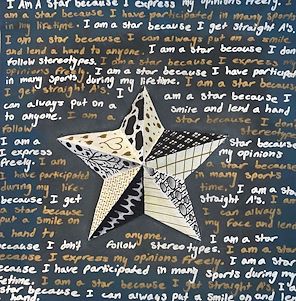 I Am A Star because I express my opinions freely. I
am a Star because I have participated in many sports
in my lifetime. I am a Star because I get straight A's.
I am a Star because I can always put a smile on
and lend a hand to anyone. I am a Star because I don't
follow stereotypes. I am a Star because I express my
opinions freely. I am a Star because I have participated
in many sports during my lifetime. I am a Star because
I get straight A's. I am a Star because I
can always put on a smile and lend a hand
to anyone. I am a
follow stereotypes.
I am a Star because
I express my opinions
freely. I am
have participated in many
during my life- time. I am a Star
because I get straight A's. I am
a Star because I can always
put a smile on my face and lend
a hand to anyone. I am a Star
because I don't follow stereotypes. I am a Star
because I express my opinions freely. I am a Star
because I have participated in many sports during my
lifetime. I am a Star because I get straight A's. I am
a Star because I can always put a smile on and